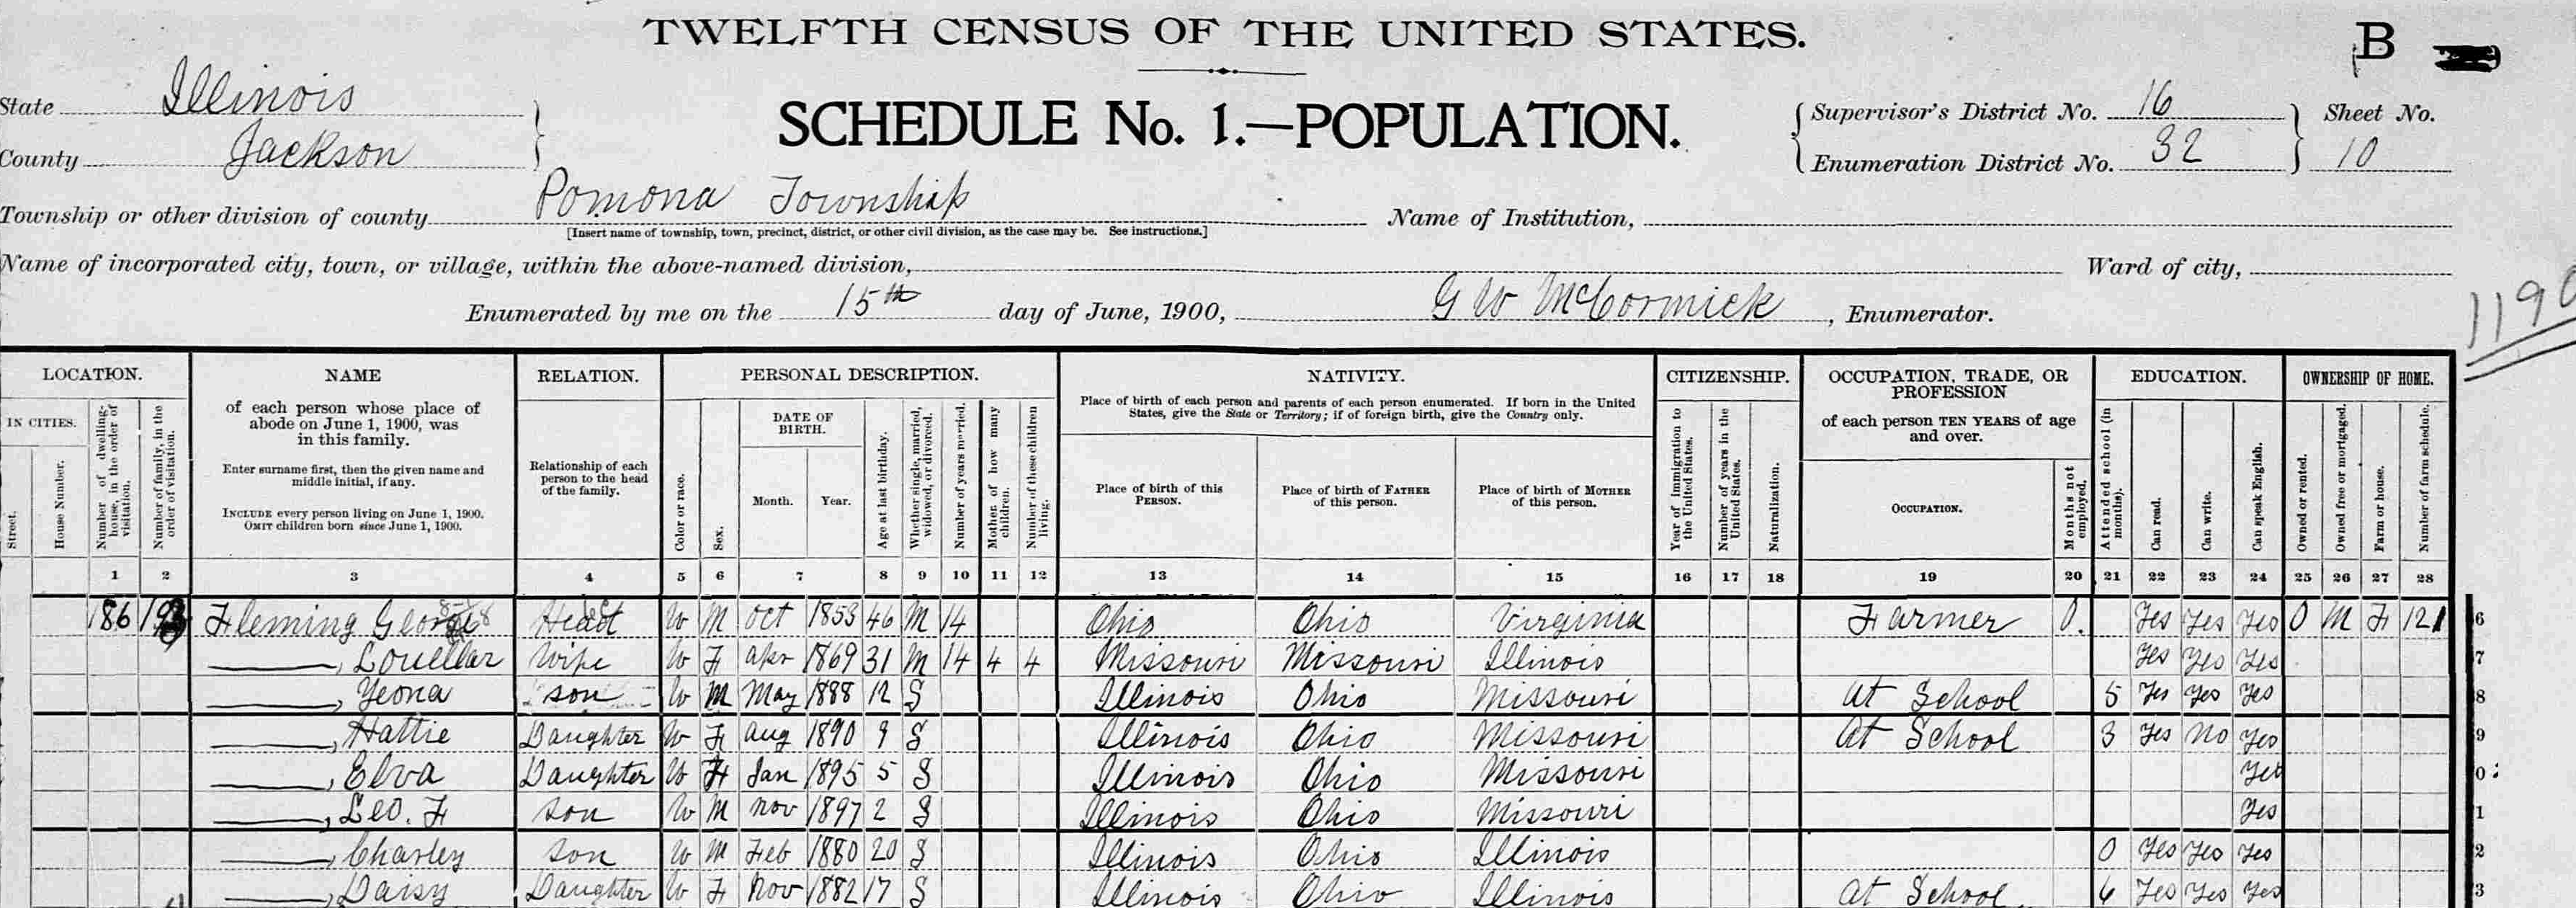 TWELFTH CENSUS OF THE UNITED STATES.
B
State Illinois
County Jackson
SCHEDULE No. 1.—POPULATION.
Supervisor's District No. 16
Enumeration District No. 32
Sheet No.
10
Township or other division of county Pomona Township
[Insert name of township, town, precinct, district, or other civil division, as the case may be. See instructions.]
Name of Institution,
Name of incorporated city, town, or village, within the above-named division,
Ward of city,
Enumerated by me on the 15th day of June, 1900, G W McCormick, Enumerator.
LOCATION.
IN CITIES.
Street.
House Number.
Number of dwelling-house, in the order of visitation.
Number of family, in the order of visitation.
NAME
of each person whose place of abode on June 1, 1900, was in this family.
Enter surname first, then the given name and middle initial, if any.
INCLUDE every person living on June 1, 1900.
OMIT children born since June 1, 1900.
RELATION.
Relationship of each person to the head of the family.
PERSONAL DESCRIPTION.
Color or race.
Sex.
DATE OF BIRTH.
Month.
Year.
Age at last birthday.
Whether single, married, widowed, or divorced.
Number of years married.
Mother of how many children.
Number of these children living.
NATIVITY.
Place of birth of each person and parents of each person enumerated. If born in the United States, give the State or Territory; if of foreign birth, give the Country only.
Place of birth of this PERSON.
Place of birth of FATHER of this person.
Place of birth of MOTHER of this person.
CITIZENSHIP.
Year of immigration to the United States.
Number of years in the United States.
Naturalization.
OCCUPATION, TRADE, OR PROFESSION
of each person TEN YEARS of age and over.
OCCUPATION.
Months not employed.
EDUCATION.
Attended school (in months).
Can read.
Can write.
Can speak English.
OWNERSHIP OF HOME.
Owned or rented.
Owned free or mortgaged.
Farm or house.
Number of farm schedule.
1 2 3 4 5 6 7 8 9 10 11 12 13 14 15 16 17 18 19 20 21 22 23 24 25 26 27 28
186 Fleming George Head W M Oct 1853 46 M 14 Ohio Ohio Virginia Farmer 0. Yes Yes Yes O M F 121 6
, Louellar Wife W F Apr 1869 31 M 14 4 4 Missouri Missouri Illinois Yes Yes Yes 7
, Yeona son W M May 1888 12 S Illinois Ohio Missouri At School 5 Yes Yes Yes 8
, Hattie Daughter W F Aug 1890 9 S Illinois Ohio Missouri At School 3 Yes No Yes 9
, Elva Daughter W F Jan 1895 5 S Illinois Ohio Missouri Yes 0
, Leo. F son W M Nov 1897 2 S Illinois Ohio Missouri Yes 1
, Charley son W M Feb 1880 20 S Illinois Ohio Illinois 0 Yes Yes Yes 2
, Daisy Daughter W F Nov 1882 17 S Illinois Ohio Illinois At School 6 Yes Yes Yes 3